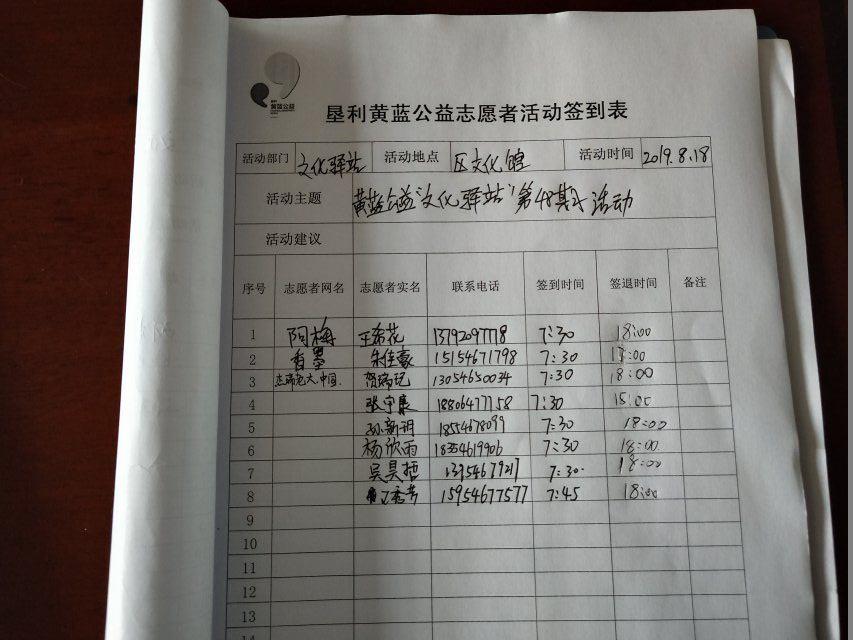 黄蓝公益
垦利黄蓝公益志愿者活动签到表
活动部门 文化驿站 活动地点 区文化馆 活动时间 2019.8.18
活动主题 黄蓝公益"文化驿站"第48期 活动
活动建议
序号 志愿者网名 志愿者实名 联系电话 签到时间 签退时间 备注
1 阿梅 王希花 13792097778 7:30 18:00
2 香墨 朱佳豪 15154671798 7:30 17:00
3 13054650034 7:30 18:00
4 张宇晨 18806477158 7:30 15:00
5 孙新玥 18554678099 7:30 18:00
6 杨欣雨 18354619906 7:30 18:00
7 吴昊哲 7:30 18:00
8 15954677577 7:45 18:00
9
10
11
12
13
14